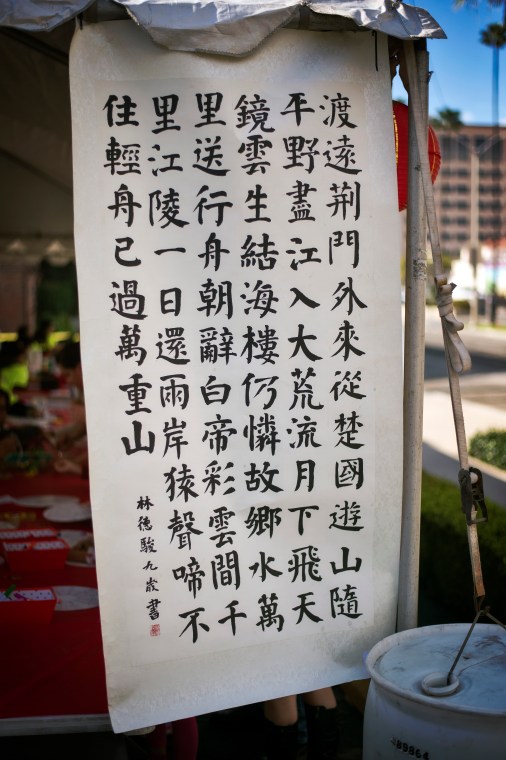 渡遠荊門外來從楚國遊山隨
平野盡江入大荒流月下飛天
鏡雲生結海樓仍憐故鄉水萬
里送行舟朝辭白帝彩雲間千
里江陵一日還雨岸猿聲啼不
住輕舟已過萬重山
林德駿九歲書